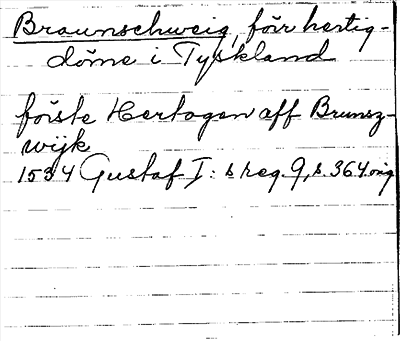 Braunschweig, förr hertig-
döme i Tyskland
förste Hertogen aff Brunsz-
wijk
1534 Gustaf I: s reg. 9, s. 364 orig